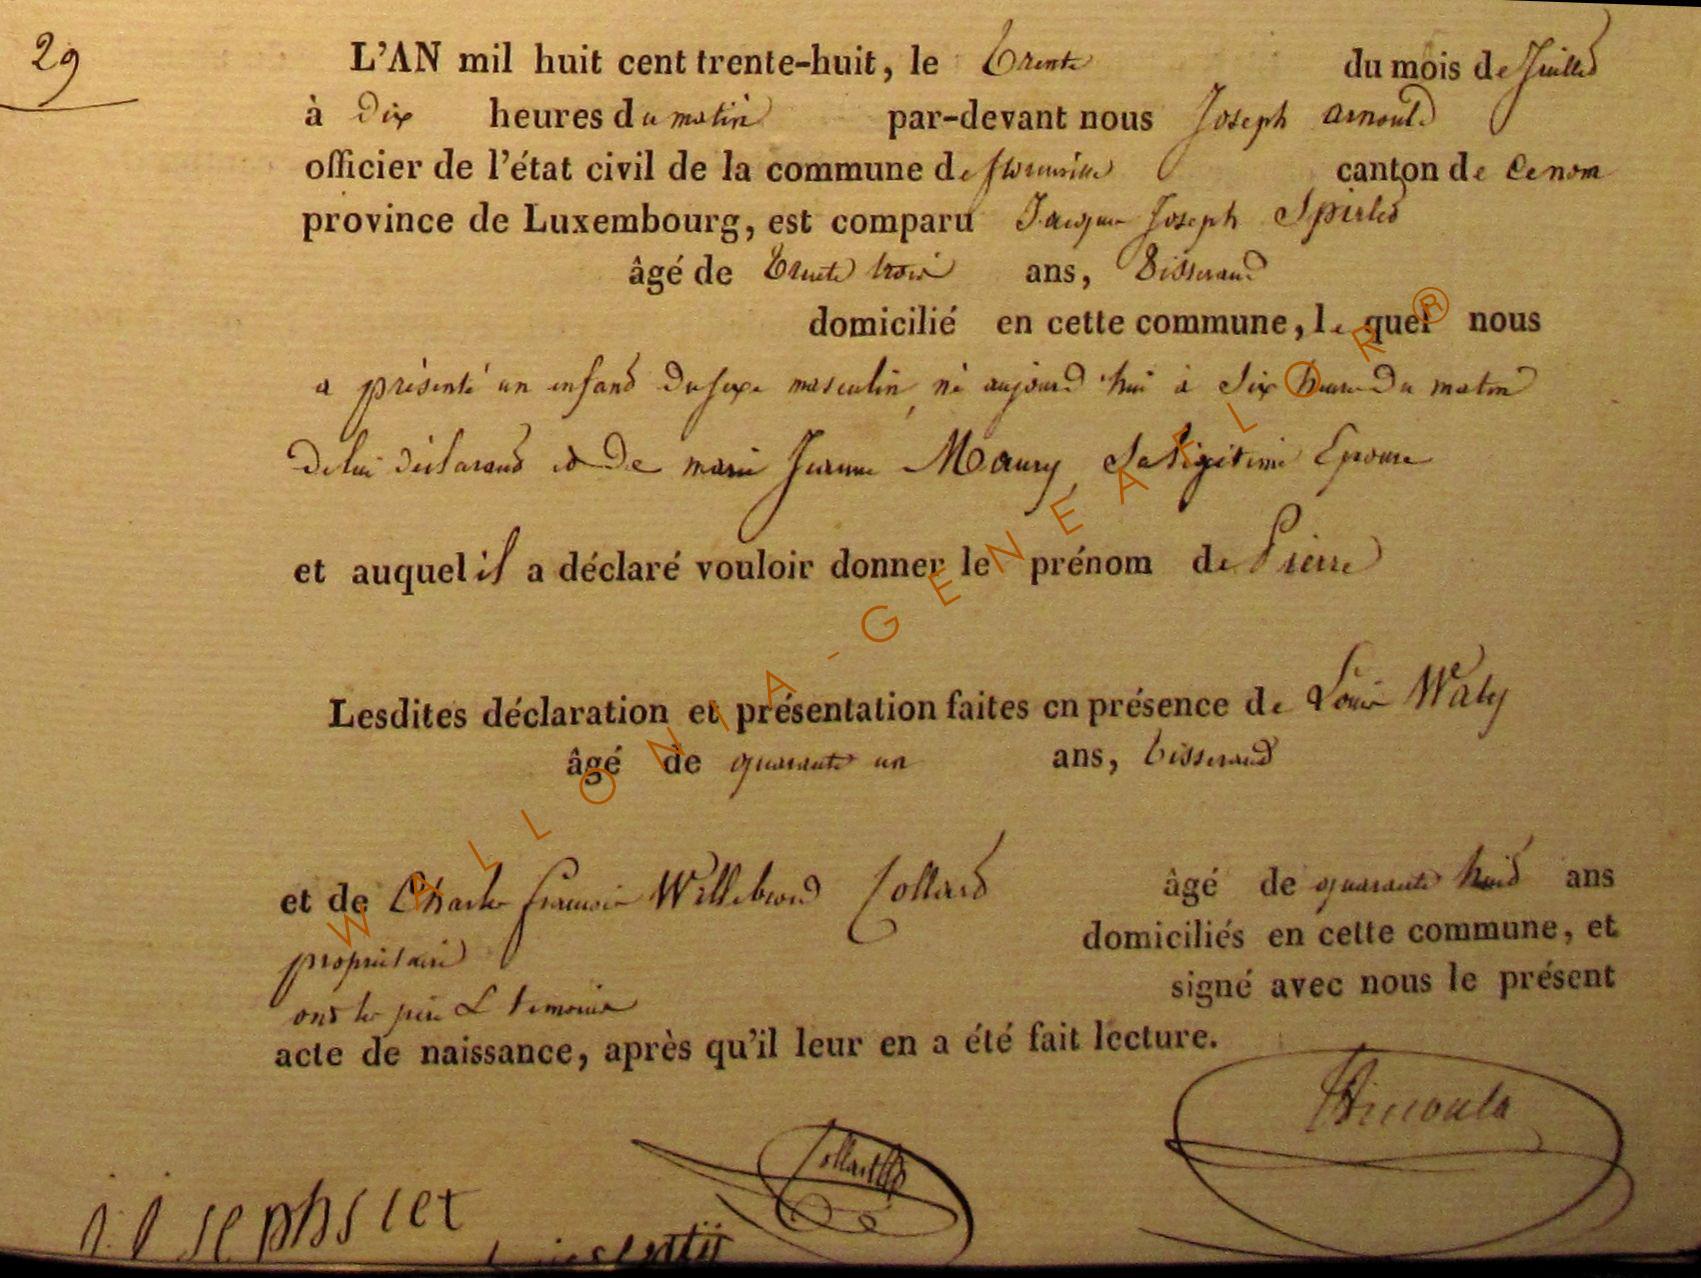 29
L'AN mil huit cent trente-huit, le Trente du mois de Juillet
à dix heures du matin par-devant nous Joseph arnould
officier de l'état civil de la commune de florenville canton de
province de Luxembourg, est comparu Jacques Joseph Spirlet
âgé de Trente trois ans, Tisserand
domicilié en cette commune, le quel nous
a présenté un enfant du sexe masculin, né aujourd'hui à Six heures du matin
de lui déclarant et de marie Jeanne Maury, Sa légitime Epouse
et auquel il a déclaré vouloir donner le prénom de Pierre
Lesdites déclaration et présentation faites en présence de Louis Waty
âgé de quarante un ans, tisserand
et de Charles francois Willebrord Collard âgé de quarante huit ans
propriétaire domiciliés en cette commune, et
ont les père & témoins signé avec nous le présent
acte de naissance, après qu'il leur en a été fait lecture.
Arnould
Collard
WALLONIA-GENEAFLOR®